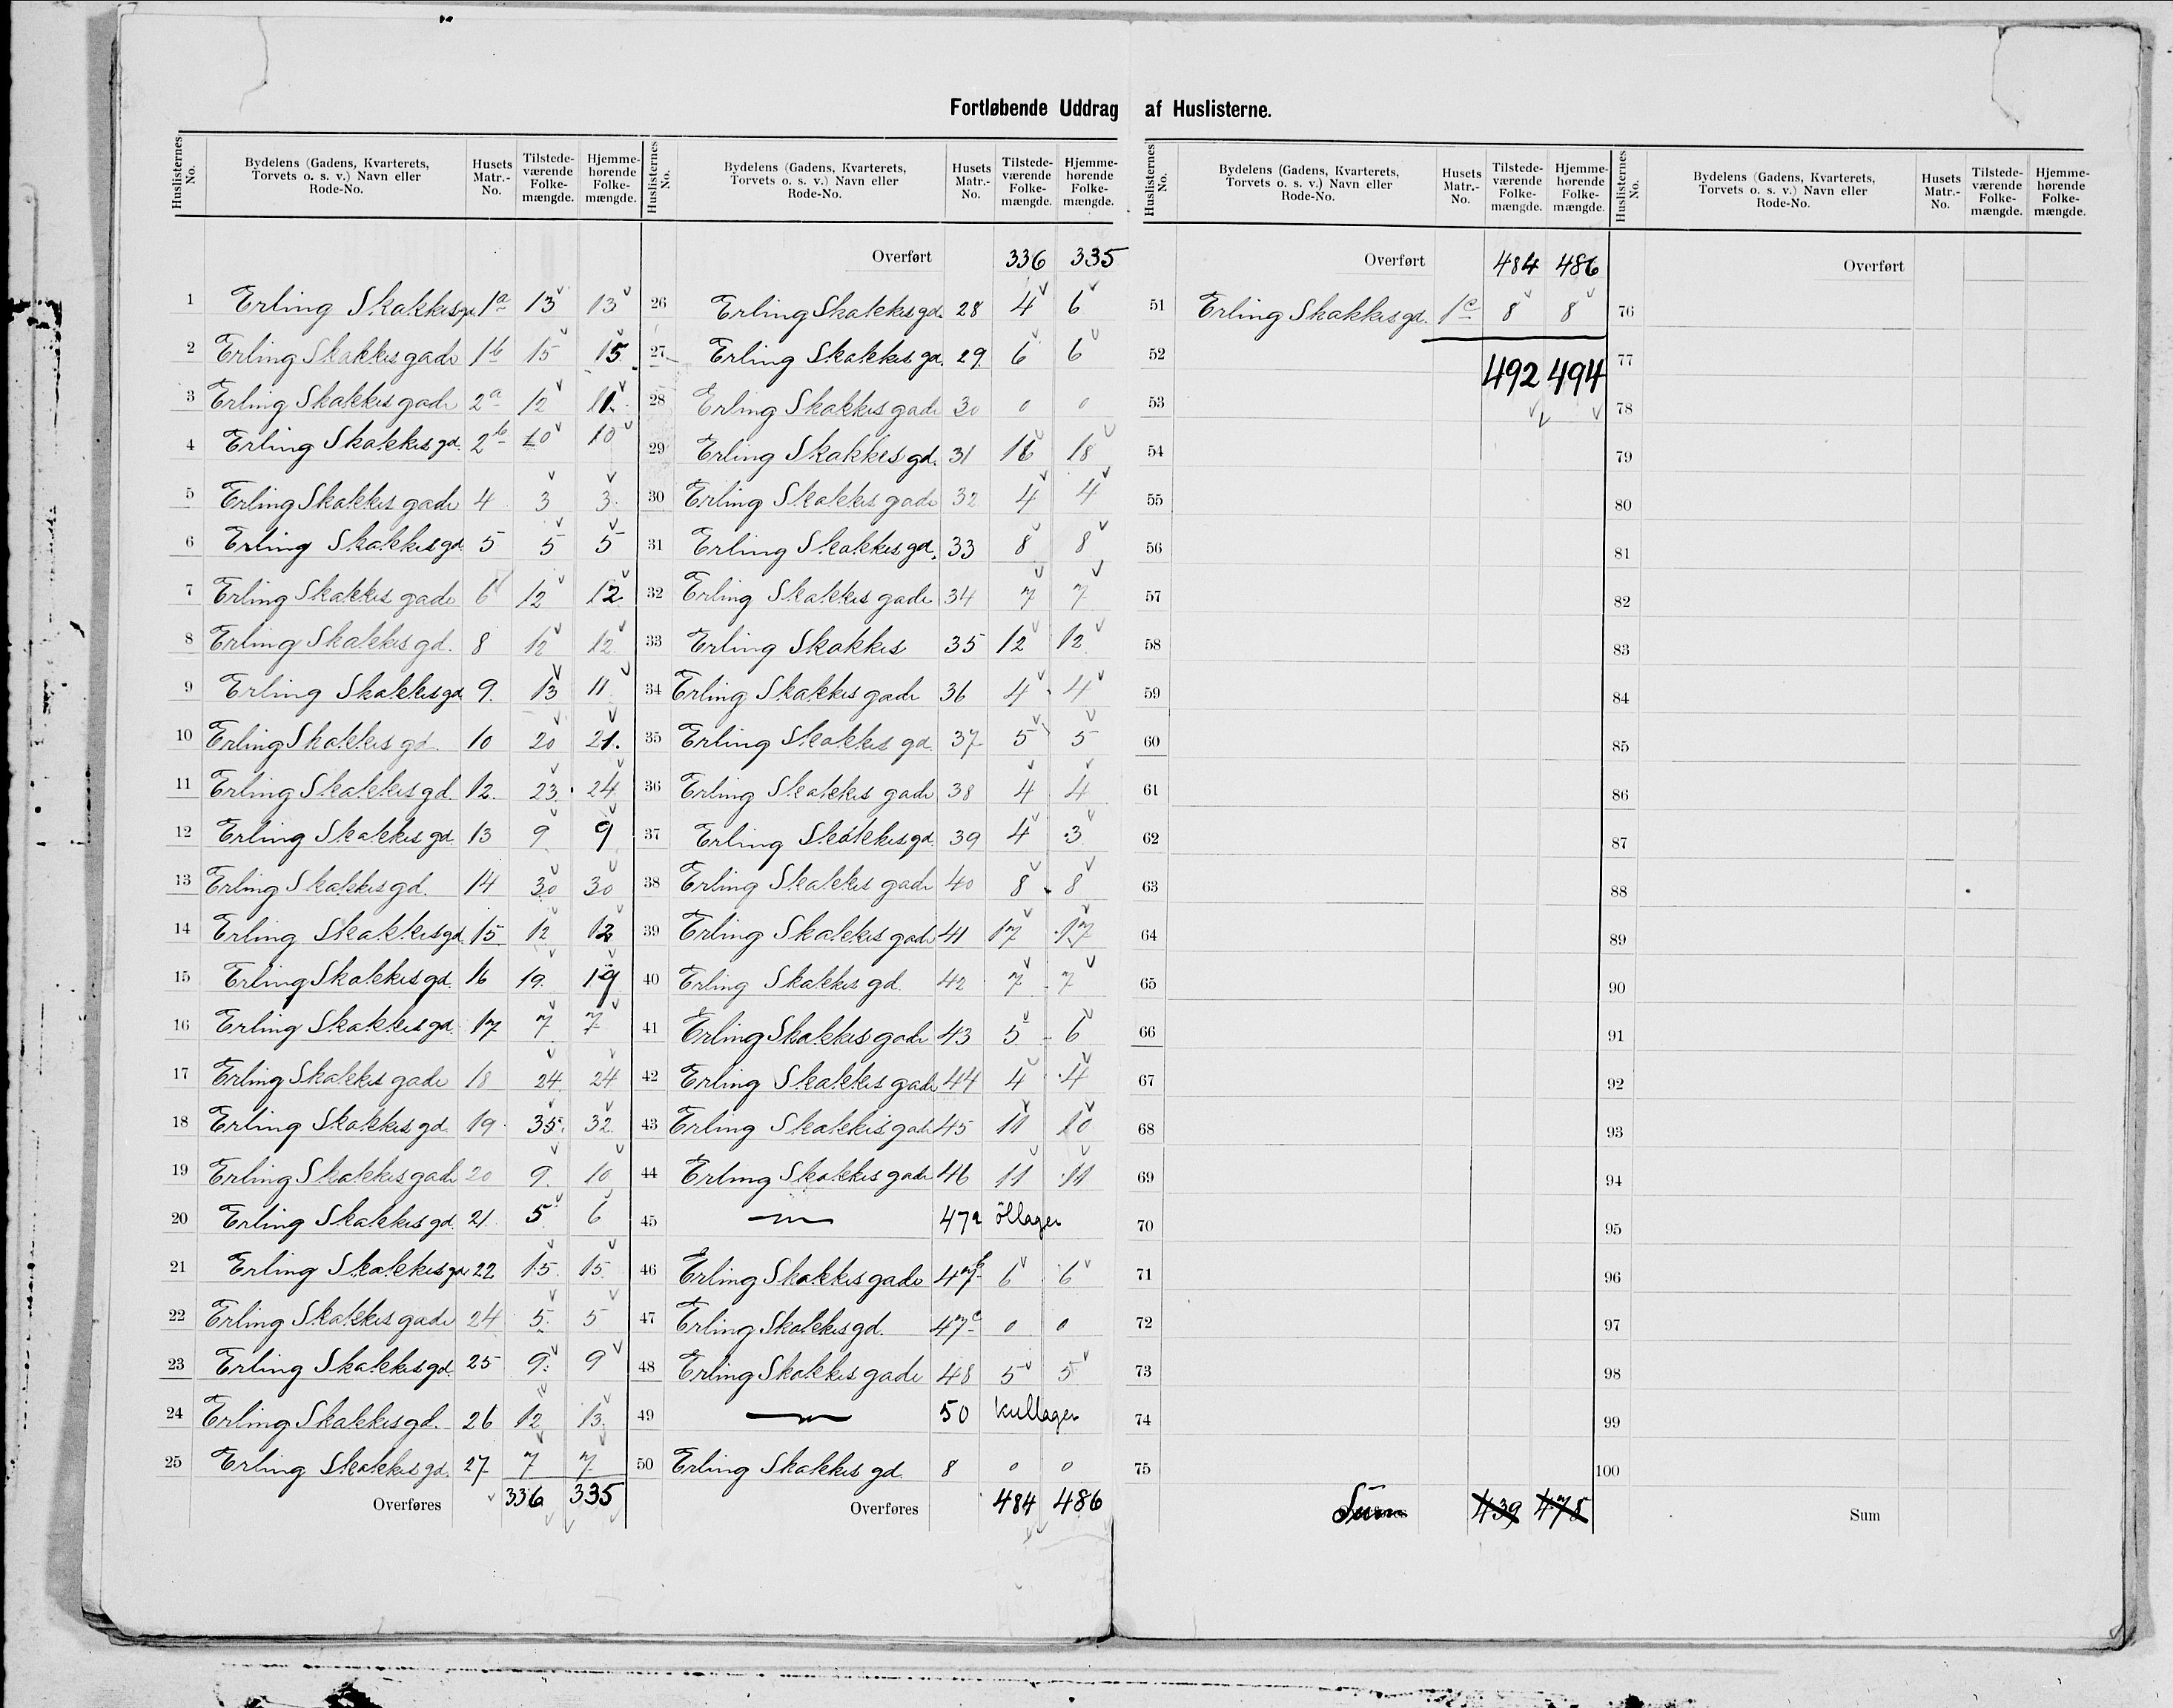 Fortløbende Uddrag af Huslisterne.
Huslisternes No. Bydelens (Gadens, Kvarterets, Torvets o. s. v.) Navn eller Rode-No. Husets Matr.-No. Tilstedeværende Folkemængde. Hjemmehørende Folkemængde.
1 Erling Skakkes gd. 1a 13 13
2 Erling Skakkes gade 1b 15 15
3 Erling Skakkes gade 2a 12 11
4 Erling Skakkes gd. 2b 10 10
5 Erling Skakkes gade 4 3 3
6 Erling Skakkes gd. 5 5 5
7 Erling Skakkes gade 6 12 12
8 Erling Skakkes gd. 8 12 12
9 Erling Skakkes gd. 9. 13 11
10 Erling Skakkes gd. 10 20 21.
11 Erling Skakkes gd. 12. 23. 24
12 Erling Skakkes gd. 13 9 9
13 Erling Skakkes gd. 14 30 30
14 Erling Skakkes gd. 15 12 12
15 Erling Skakkes gd. 16 19. 19
16 Erling Skakkes gd. 17 7 7
17 Erling Skakkes gade 18 24. 24
18 Erling Skakkes gd. 19 35. 32
19 Erling Skakkes gade 20 9. 10
20 Erling Skakkes gd. 21. 5 6
21 Erling Skakkes gd. 22 15. 15
22 Erling Skakkes gade 24 5. 5
23 Erling Skakkes gd. 25 9. 9
24 Erling Skakkes gd. 26 12 13.
25 Erling Skakkes gd. 27 7 7
Overføres 336 335
Huslisternes No. Bydelens (Gadens, Kvarterets, Torvets o. s. v.) Navn eller Rode-No. Husets Matr.-No. Tilstedeværende Folkemængde. Hjemmehørende Folkemængde.
Overført 336 335
26 Erling Skakkes gd. 28 4 6
27 Erling Skakkes gd. 29 6 6
28 Erling Skakkes gade 30 0 0
29 Erling Skakkes gd. 31 16 18
30 Erling Skakkes gade 32 4 4
31 Erling Skakkes gd. 33 8 8
32 Erling Skakkes gade 34 7 7
33 Erling Skakkes 35 12 12
34 Erling Skakkes gade 36 4 4
35 Erling Skakkes gd. 37 5 5
36 Erling Skakkes gade 38 4 4
37 Erling Skakkes gd. 39 4 3
38 Erling Skakkes gade 40 8 8
39 Erling Skakkes gade 41 17 17
40 Erling Skakkes gd. 42 7 7
41 Erling Skakkes gade 43 5 6
42 Erling Skakkes gade 44 4 4
43 Erling Skakkes gade 45 11 10
44 Erling Skakkes gade 46 11 11
45 47a öllager
46 Erling Skakkes gade 47b 6 6
47 Erling Skakkes gd. 47c 0 0
48 Erling Skakkes gade 48 5 5
49 50 kullager
50 Erling Skakkes gd. 8 0 0
Overføres 484 486
Huslisternes No. Bydelens (Gadens, Kvarterets, Torvets o. s. v.) Navn eller Rode-No. Husets Matr.-No. Tilstedeværende Folkemængde. Hjemmehørende Folkemængde.
Overført 484 486
51 Erling Skakkes gd. 1c 8 8
52 492 494
53
54
55
56
57
58
59
60
61
62
63
64
65
66
67
68
69
70
71
72
73
74
75
Sum 439 478
Huslisternes No. Bydelens (Gadens, Kvarterets, Torvets o. s. v.) Navn eller Rode-No. Husets Matr.-No. Tilstedeværende Folkemængde. Hjemmehørende Folkemængde.
Overført
76
77
78
79
80
81
82
83
84
85
86
87
88
89
90
91
92
93
94
95
96
97
98
99
100
Sum